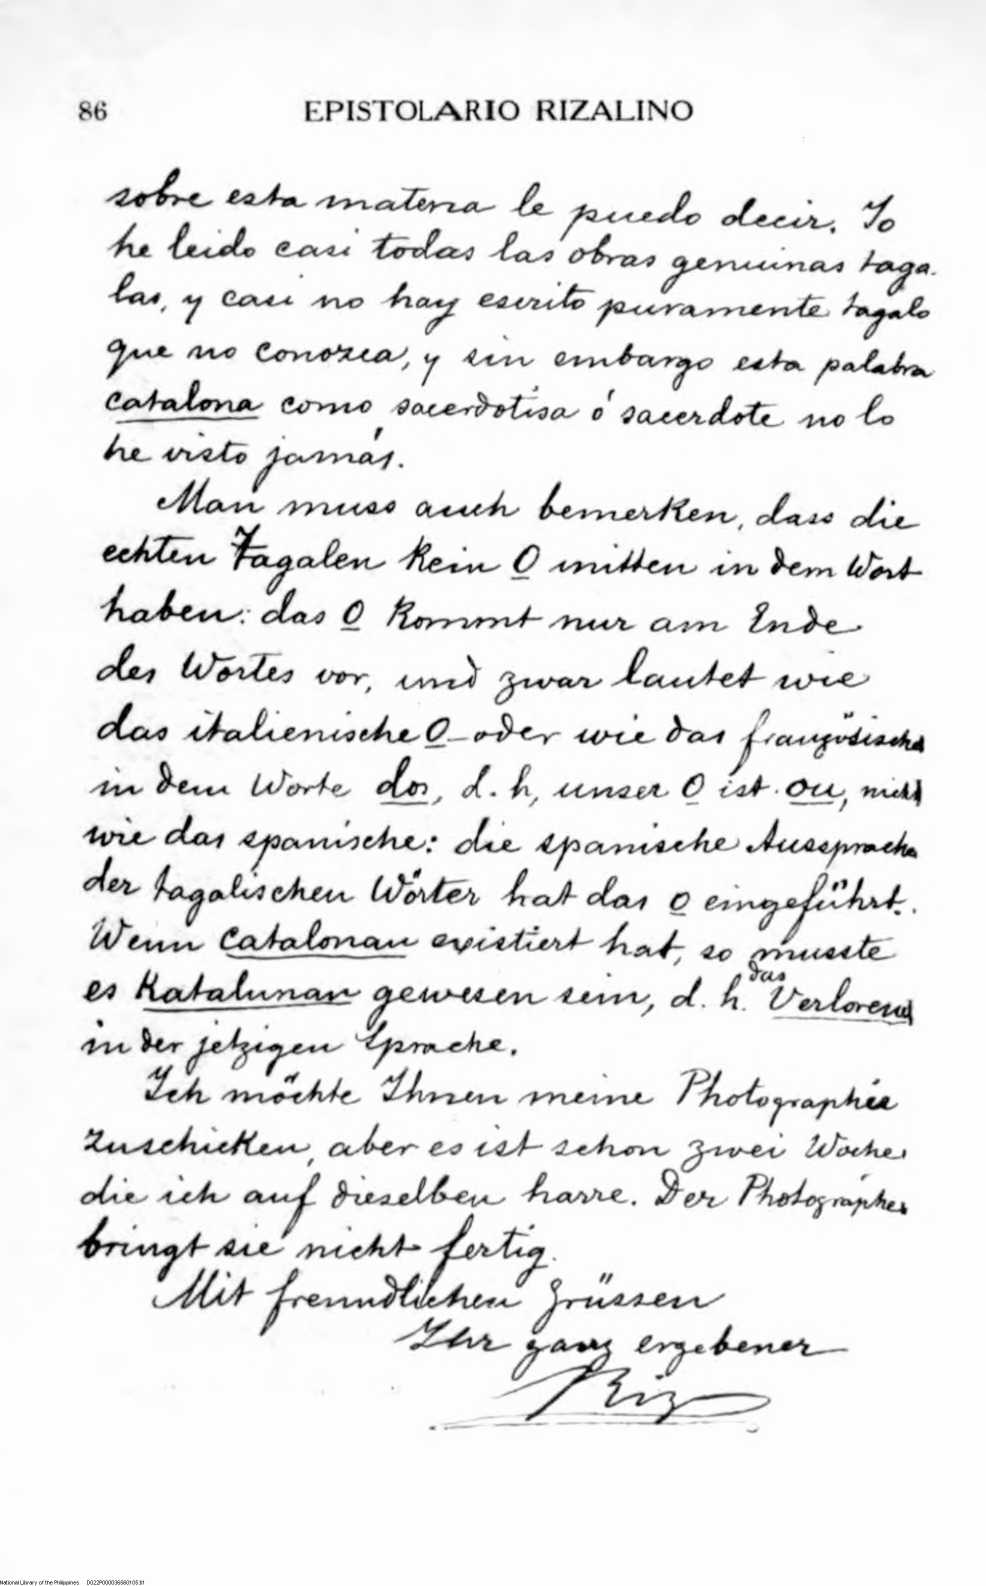 86 EPISTOLARIO RIZALINO
sobre esta materia le puedo decir. Yo
he leido casi todas las obras genuinas taga-
las, y casi no hay escrito puramente tagalo
que no conozca, y sin embargo esta palabra
catalona como sacerdotisa ó sacerdote no lo
he visto jamás.
Man muss auch bemerken, dass die
echten Tagalen kein O mitten in dem Wort
haben: das O kommt nur am Ende
des Wortes vor, und zwar lautet wie
das italienische O - oder wie das französische
in dem Worte dos, d. h, unser O ist ou, nicht
wie das spanische: die spanische Aussprache
der tagalischen Wörter hat das o eingeführt.
Wenn catalonan existiert hat, so musste
es Katalunan gewesen sein, d. h. das Verlorene
in der jetzigen Sprache.
Ich möchte Ihnen meine Photographie
zuschicken, aber es ist schon zwei Wochen
die ich auf dieselben harre. Der Photographer
bringt sie nicht fertig.
Mit freundlichen Grüssen
Ihr ganz ergebener
Riz
National Library of the Philippines